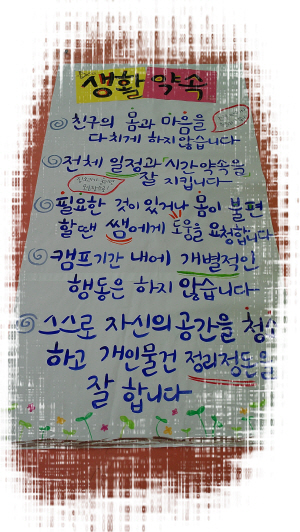 생활 약속
친구의 몸과 마음을
다치게 하지않습니다
전체 일정과 시간약속을
잘 지킵니다
필요한 것이 있거나 몸이 불편
할땐 쌤에게 도움을 요청합니다
캠프기간 내에 개별적인
행동은 하지 않습니다
스스로 자신의 공간을 청소
하고 개인물건 정리정돈을
잘 합니다